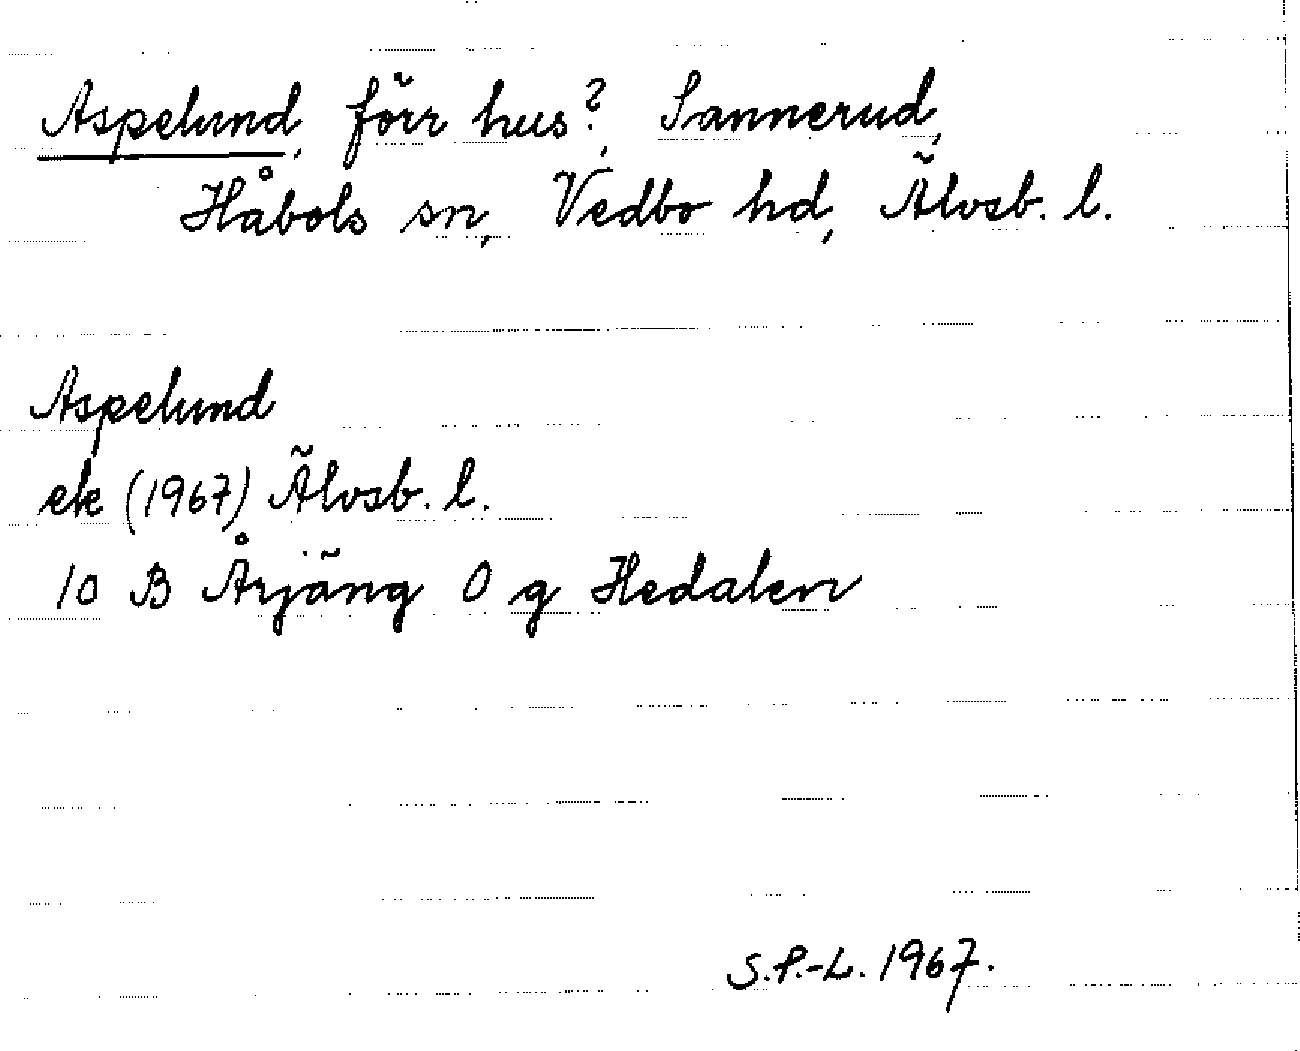 Aspelund, förr hus?, Sannerud,
Håbols sn, Vedbo hd, Älvsb. l.
Aspelund
ek (1967) Älvsb. l.
10 B Årjäng 0 g Hedalen
S.P.-L. 1967.